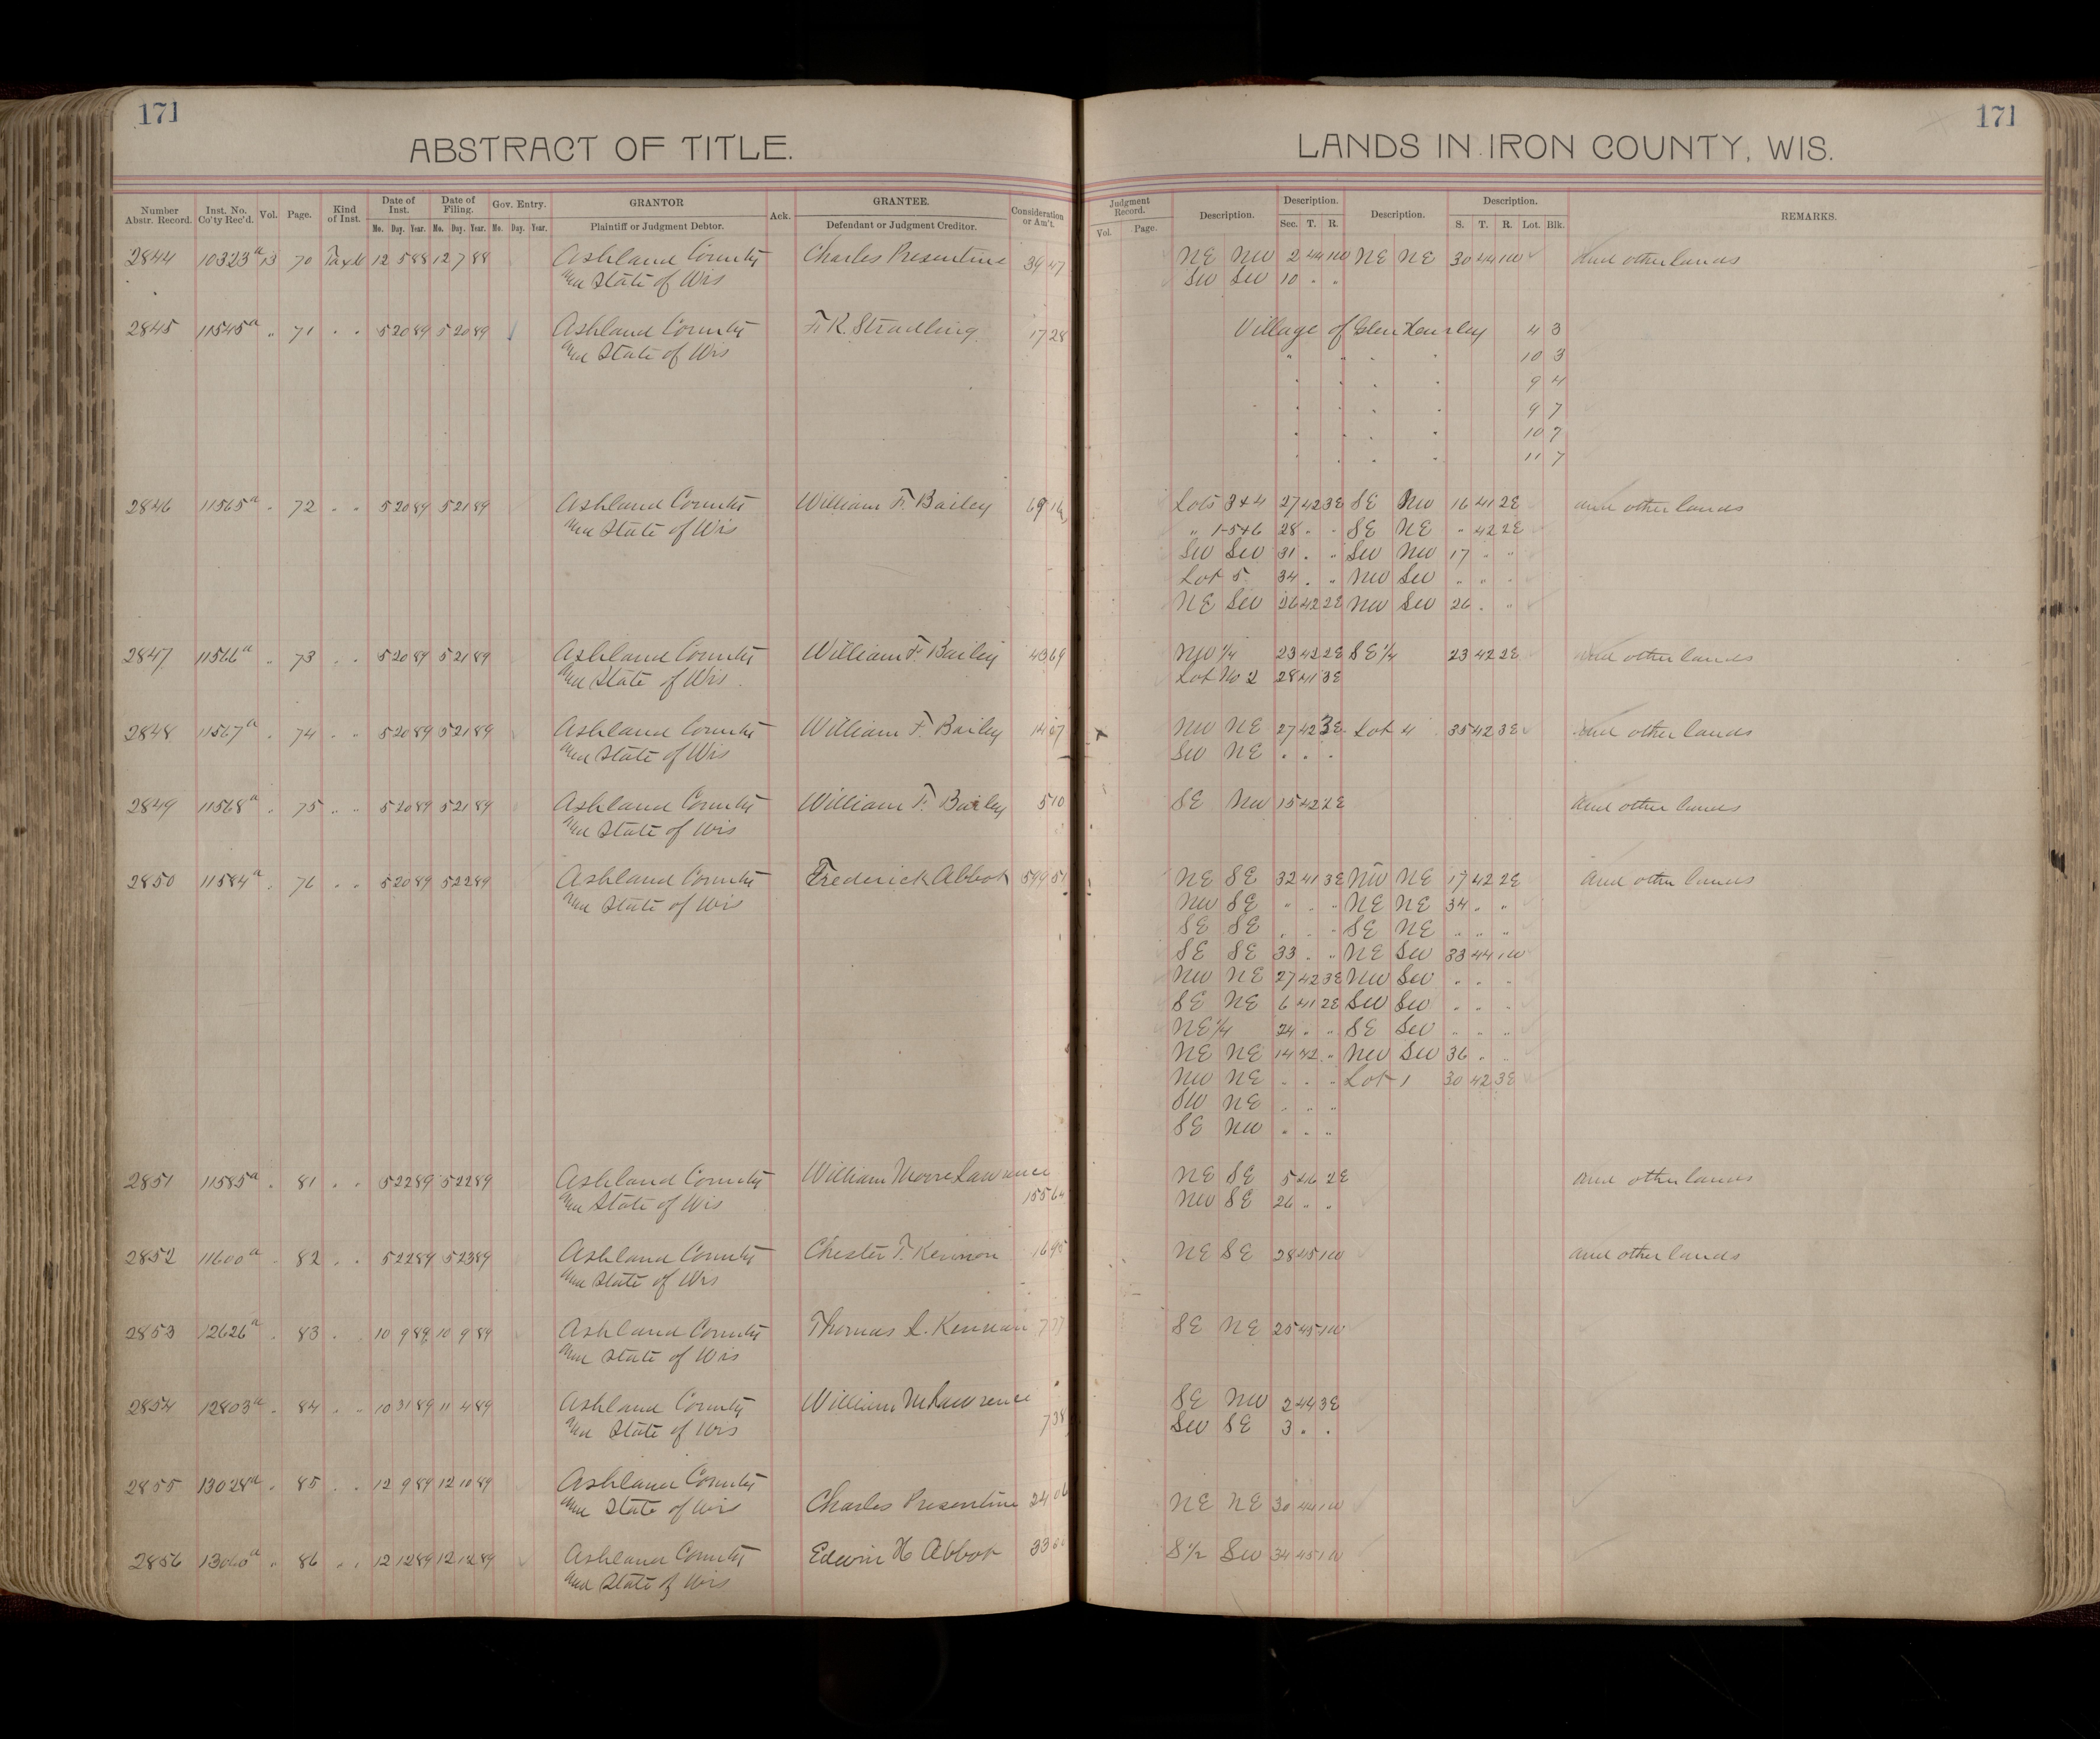 171
171
ABSTRACT OF TITLE.
LANDS IN IRON COUNTY, WIS.
Number Abstr. Record. Inst. No. Co'ty Rec'd. Vol. Page. Kind of Inst. Date of Inst. Date of Filing. Gov. Entry. GRANTOR Ack. GRANTEE. Consideration or Am't. Judgment Record. Description. Description. Description. Description. REMARKS.
Mo. Day. Year. Mo. Day. Year. Mo. Day. Year. Plaintiff or Judgment Debtor. Defendant or Judgment Creditor. Vol. Page. Sec. T. R. S. T. R. Lot. Blk.
2844 10323a 13 70 Tax D 12 5 88 12 7 88 Ashland County Charles Presentine 39 47 NE NW 2 44 1W NE NE 30 44 1W And other lands
and State of Wis SW SW 10 " "
2845 11545a " 71 " " 5 20 89 5 20 89 Ashland County F. R. Stradling 17 28 Village of Glen Hensley 4 3
and State of Wis " " " " 10 3
" " " 9 4
" " " 9 7
" " " " 10 7
" " " " 11 7
2846 11565a " 72 " " 5 20 89 5 21 89 Ashland County William F. Bailey 69 16 Lots 3+4 27 42 3E SE NW 16 41 2E and other lands
and State of Wis " 1-5+6 28 " " SE NE " 42 2E
SW SW 31 " " SW NW 17 " "
Lot 5 34 " " NW SW " " "
NE SW 36 42 2E NW SW 26 " "
2847 11566a " 73 " " 5 20 89 5 21 89 Ashland County William F. Bailey 43 69 NW 1/4 23 42 2E SE 1/4 23 42 2E and other lands
and State of Wis. Lot No 2 28 41 3E
2848 11567a " 74 " " 5 20 89 5 21 89 Ashland County William F. Bailey 14 07 NW NE 27 42 3E Lot 4 35 42 3E and other lands
and State of Wis SW NE " " "
2849 11568a " 75 " " 5 20 89 5 21 89 Ashland County William F. Bailey 5 10 SE NW 15 42 2E and other lands
and State of Wis
2850 11584a " 76 " " 5 20 89 5 22 89 Ashland County Frederick Abbot 599 51 NE SE 32 41 3E NW NE 17 42 2E and other lands
and State of Wis NW SE " " " NE NE 34 " "
SE SE " " " SE NE " " "
SE SE 33 " " NE SW 33 44 1W
NW NE 27 42 3E NW SW " " "
SE NE 6 41 2E SW SW " " "
NE 1/4 24 " " SE SW " " "
NE NE 14 42 " NW SW 36 " "
NW NE " " " Lot 1 30 42 3E
SW NE " " "
SE NW " " "
2851 11585a " 81 " " 5 22 89 5 22 89 Ashland County William Moore Lawrence NE SE 5 46 2E and other lands
and State of Wis 155 64 NW SE 26 " "
2852 11600a " 82 " " 5 22 89 5 23 89 Ashland County Chester T. Kennon 16 95 NE SE 28 45 1W and other lands
and State of Wis
2853 12626a " 83 " " 10 9 89 10 9 89 Ashland County Thomas L. Kennan 7 77 SE NE 25 45 1W
and State of Wis
2854 12803a " 84 " " 10 31 89 11 4 89 Ashland County William M Lawrence SE NW 2 44 3E
and State of Wis 7 38 SW SE 3 " "
2855 13028a " 85 " " 12 9 89 12 10 89 Ashland County
and State of Wis Charles Presentine 24 06 NE NE 30 44 1W
2856 13060a " 86 " " 12 12 89 12 12 89 Ashland County Edwin H Abbot 33 S 1/2 SW 34 45 1W
and State of Wis